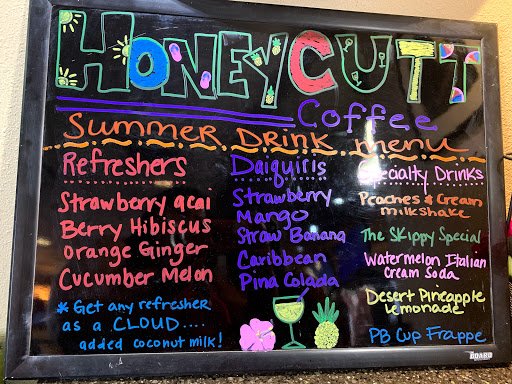 HONEYCUTT
Coffee
Summer Drink menu
Refreshers
Strawberry acai
Berry Hibiscus
Orange Ginger
Cucumber Melon
* Get any refresher
as a CLOUD....
added coconut milk!
Daiquiris
Strawberry
Mango
Straw Banana
Caribbean
Pina Colada
Specialty Drinks
Peaches & Cream
milkshake
The Skippy Special
Watermelon Italian
Cream Soda
Desert Pineapple
Lemonade
PB Cup Frappe
THE BOARD